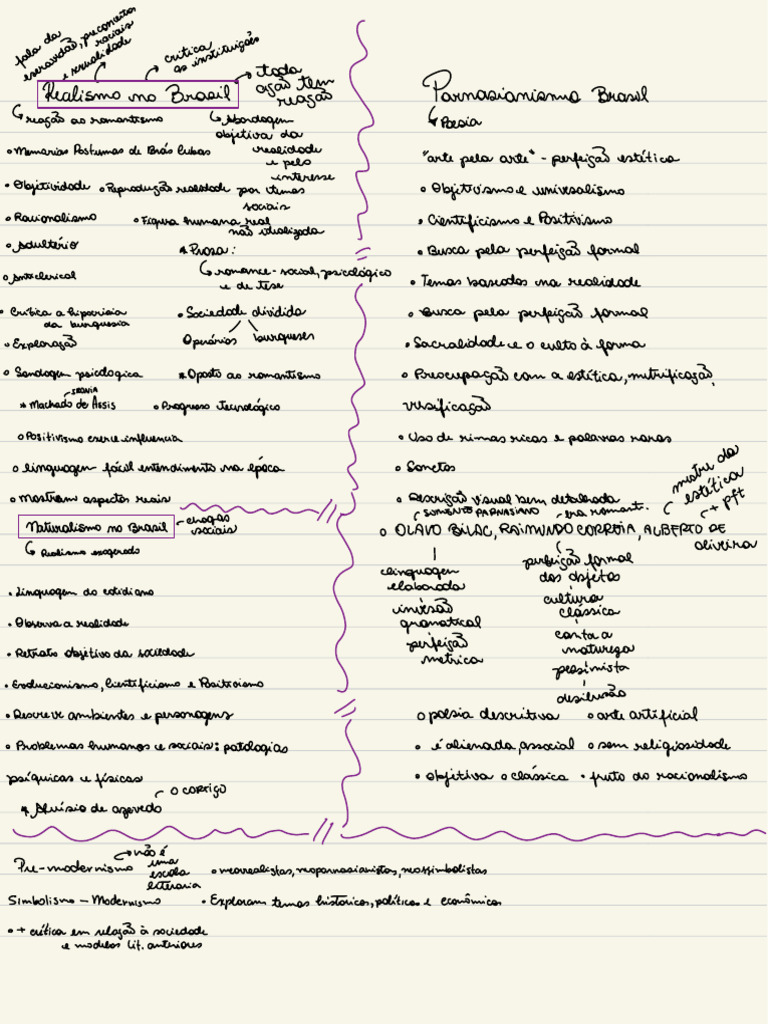 fala da
escravidão, preconceitos
raciais
e sexualidade
crítica
as instituições
Realismo no Brasil
toda
ação tem
reação
reação ao romantismo
Abordagem
objetiva da
realidade
e pelo
interesse
por temas
sociais
• Memorias Postumas de Brás Cubas
• Objetividade • Reprodução realidade
• Racionalismo • Figura humana real
não idealizada
• Adultério
* Prosa:
romance - social, psicológico
e de tese
• Anticlerical
• Crítica a hipocrisia
da burguesia
• Sociedade dividida
Operários burgueses
• Exploração
• Sondagem psicologica * Oposto ao romantismo
IRONIA
* Machado de Assis • Progresso tecnológico
• Positivismo exerce influencia
• linguagem fácil entendimento na época
• mostram aspectos reais
Naturalismo no Brasil
chagas
sociais
Realismo exagerado
• Linguagem do cotidiano
• Observa a realidade
• Retrato objetivo da sociedade
• Evolucionismo, Cientificismo e Positivismo
• Descreve ambientes e personagens
• Problemas humanos e sociais: patologias
psíquicas e físicas
O CORTIÇO
* Aluísio de azevedo
Parnasianismo Brasil
Poesia
"arte pela arte" - perfeição estética
• Objetivismo e universalismo
• Cientificismo e Positivismo
• Busca pela perfeição formal
• Temas baseados na realidade
• Busca pela perfeição formal
• Sacralidade e o culto à forma
• Preocupação com a estética, metrificação,
versificação
• Uso de rimas ricas e palavras raras
• Sonetos
• Descrição visual bem detalhada
SOMENTE PARNASIANO
era romant.
mestre da
estética
+ pft
• OLAVO BILAC, RAIMUNDO CORREIA, ALBERTO DE
oliveira
linguagem
elaborada
inversão
gramatical
perfeição
metrica
perfeição formal
dos objetos
cultura
clássica
canta a
natureza
pessimista
desilusão
• poesia descritiva • arte artificial
• é alienada, associal • sem religiosidade
• objetiva • clássica • fruto do racionalismo
Pre-modernismo
não é
uma
escola
literaria
• neorrealistas, neoparnasianistas, neossimbolistas
Simbolismo - Modernismo • Exploram temas históricos, políticos e econômicos
• + crítica em relação à sociedade
e modelos lit. anteriores